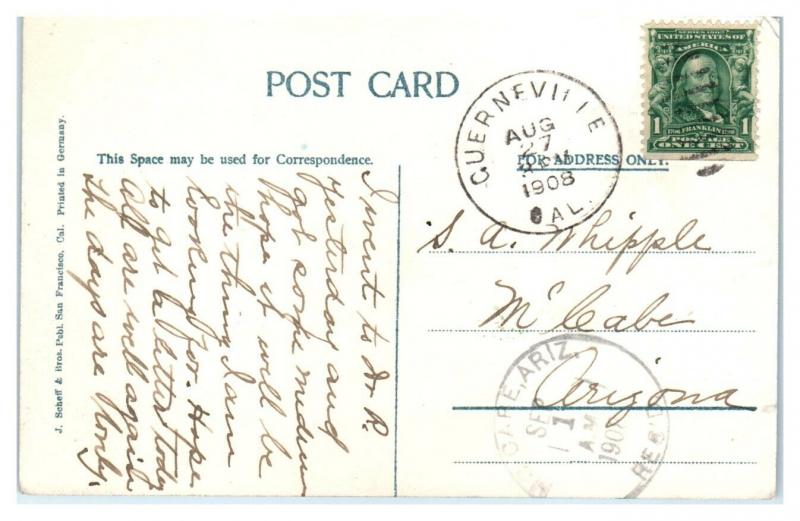 POST CARD
This Space may be used for Correspondence.
FOR ADDRESS ONLY.
J. Scheff & Bros. Publ. San Francisco, Cal. Printed in Germany.
SERIES 1902
UNITED STATES OF
AMERICA
1 1706 FRANKLIN 1790 1
POSTAGE
ONE CENT
GUERNEVILLE
AUG
27
1908
CAL.
I went to Dr R.
yesterday and
got some medicine
Hope it will be
the thing I am
looking for. Hope
to get a letter today
All are well again
The days are lonly.
S. A. Whipple
McCabe
Arizona
ARIZ.
SEP
1
AM
1908
REC'D